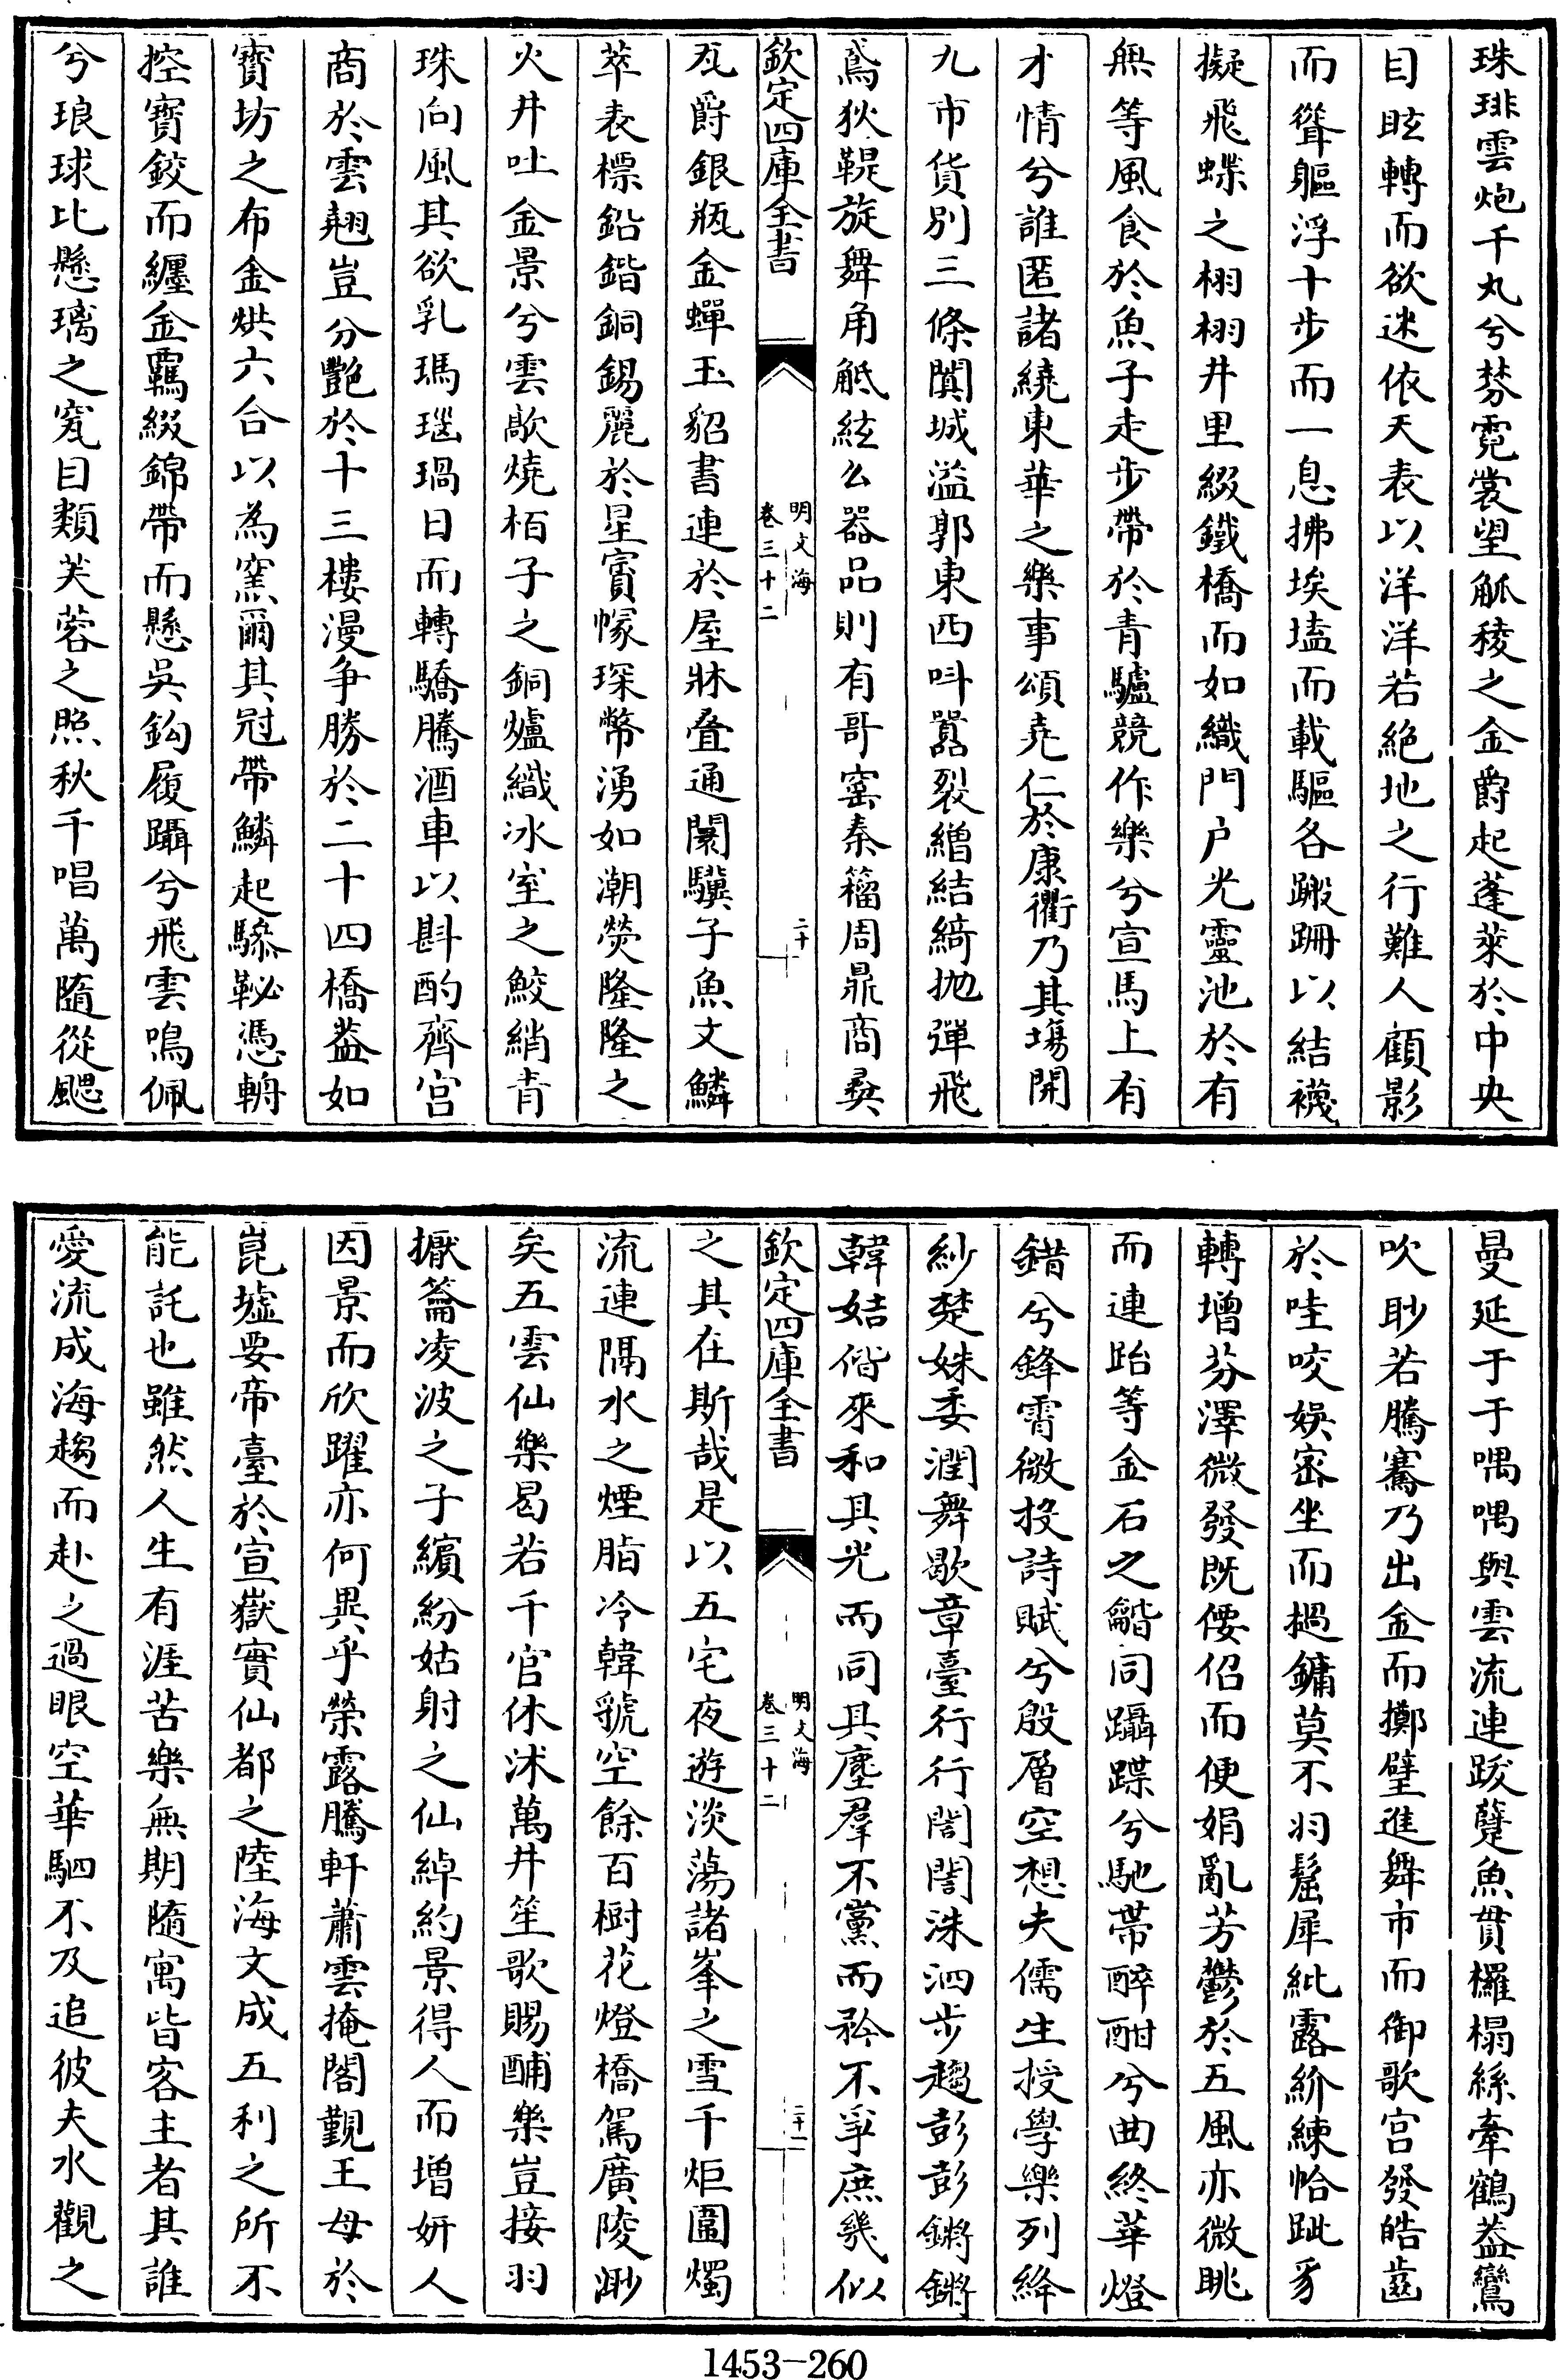 珠琲雲炮千丸兮棼霓裳望觚稜之金爵起蓬萊於中央
目眩轉而欲迷依天表以洋洋若絶地之行難人顧影
而聳軀浮十步而一息拂埃壒而載驅各蹶跚以結襪
擬飛蝶之栩栩井里綴鐵橋而如織門户光靈池於有
無等風食於魚子走步帶於青驢競作樂兮宣馬上有
才情兮誰匿諸繞東華之樂事頌堯仁於康衢乃其塲開
九市貨别三條闐城溢郭東西呌嚻裂繒結綺抛彈飛
鳶狄鞮旋舞角觝絃么器品則有哥窰秦籀周鼎商彝
欽定四庫全書
明文海
卷三十二
二十
瓦爵銀瓶金蟬玉貂書連於屋牀叠通闤驥子魚文鱗
萃表標鉛鍇銅錫麗於星賓幏琛幣湧如潮熒隆隆之
火井吐金景兮雲歊燒栢子之銅爐織冰室之鮫綃青
珠向風其欲乳瑪瑙瑦日而轉驕騰酒車以斟酌齊宫
商於雲翹豈分艷於十三樓漫争勝於二十四橋葢如
寳坊之布金烘六合以為窯爾其冠帶鱗起驂䩛憑輈
控寳鉸而纒金羈綴錦帶而懸吳鈎履躡兮飛雲鳴佩
兮琅球比懸璃之窕目類芙蓉之照秋千唱萬隨從颸
曼延于于喁喁與雲流連跋躠魚貫欏榻絲牽鶴葢鸞
吹眇若騰騫乃出金而擲璧進舞市而御歌宫發皓齒
於哇咬娛宻坐而摐鏞莫不羽髽犀紕露紒練帢跐豸
轉增芬澤微發既偠佋而便娟亂芳鬱於五風亦微眺
而連跆等金石之龤同躡蹀兮馳帶醉酣兮曲終華燈
錯兮鋒霄微投詩賦兮殷層空想夫儒生授學樂列絳
紗楚姝委潤舞歇章臺行行誾誾洙泗步趨彭彭鏘鏘
韓姞偕來和其光而同其塵羣不黨而矜不爭庶幾似
欽定四庫全書
明文海
卷三十二
二十一
之其在斯哉是以五宅夜遊淡蕩諸峯之雪千炬圍燭
流連隔水之煙脂冷韓虢空餘百樹花燈橋駕廣陵渺
矣五雲仙樂曷若千官休沐萬井笙歌賜酺樂豈接羽
擫籥凌波之子繽紛姑射之仙綽約景得人而增妍人
因景而欣躍亦何異乎榮露騰軒蕭雲掩閣觀王母於
崑墟要帝臺於宣嶽實仙都之陸海文成五利之所不
能託也雖然人生有涯苦樂無期隨寓皆客主者其誰
愛流成海趨而赴之過眼空華駟不及追彼夫水觀之
1453-260